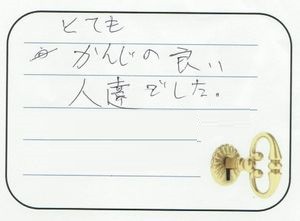 とても
かんじの良い
人達でした。